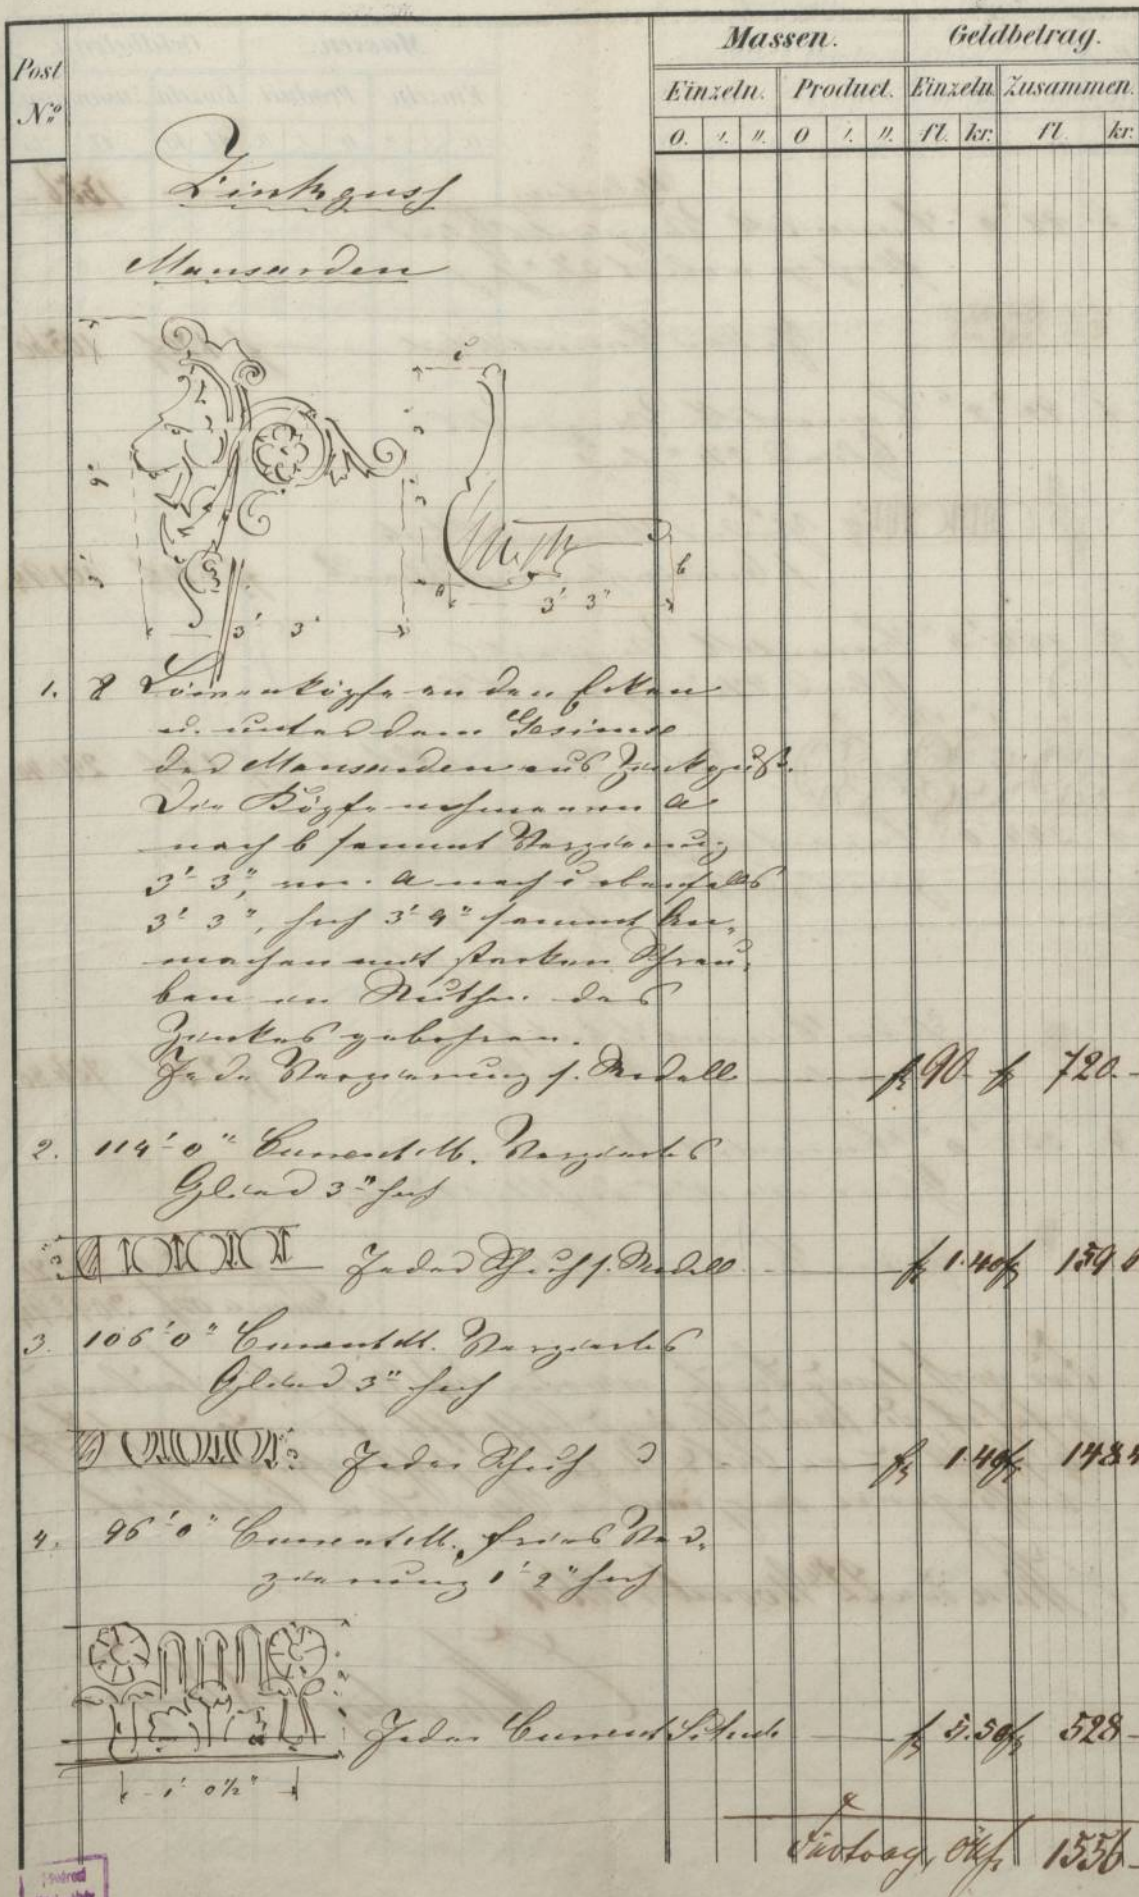 Post
Nº
Massen.
Geldbetrag.
Einzeln. Product. Einzeln. Zusammen.
0. ′. ″. 0 ′. ″. fl. kr. fl. kr.
Zinkguss
Mansarden
c
b
a
3′ 3″
3′ 3″
1. 8 Löwenköpfe an den Ecken
u. unter dem Gesimse
der Mansarden aus Zinkguß.
Die Köpfe nehmen von a
nach b sammt Verzierung
3′ 3″, von a nach c ebenfalls
3′ 3″, hoch 3′ 9″ sammt An-
machen mit starken Schrau-
ben an des
Zinkes gebohren.
Jede Verzierung s. Modell f 90 f 720.-
2. 114′ 0″ Current Verziertes
Glied 3″ hoch
3″
Jeder Schuh s. Modell f 1.40 f 159 6
3. 106′ 0″ Current Verziertes
Glied 3″ hoch
Jeder Schuh f 1.40 f 148 4
4. 96′ 0″ Current Fries Ver-
zierung 1′ 2″ hoch
Jeder Current Schuh f 5.50 f 528 -
1′ 0½″
Fürtrag, öWf. 1556 -